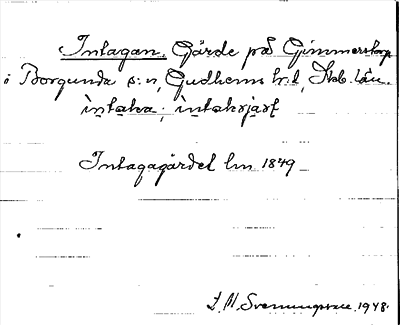 Intagan. Gärde på Gimmerstorp
i Borgunda s:n, Gudhems hd, Skb. län.
ìntaka; ìntaksjaḷ
Intagagärdet lm 1849
S. N. Svenungsson. 1948.